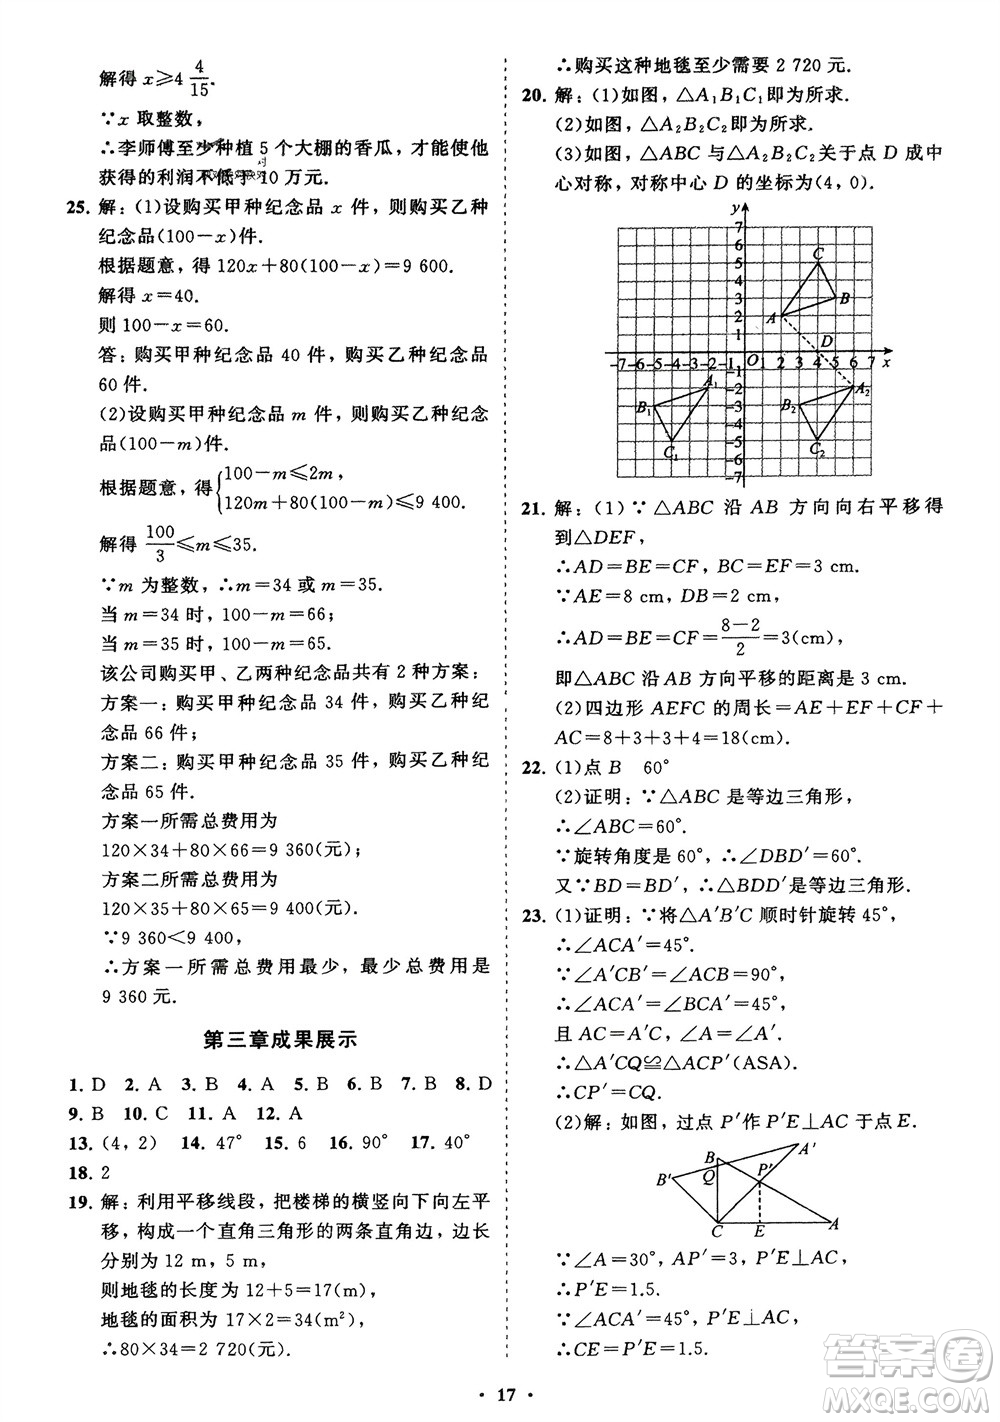 解得 x≥4 4/15.
∵x 取整数，
∴李师傅至少种植 5 个大棚的香瓜，才能使他
获得的利润不低于 10 万元.
25. 解：(1)设购买甲种纪念品 x 件，则购买乙种
纪念品(100－x)件.
根据题意，得 120x＋80(100－x)＝9 600.
解得 x＝40.
则 100－x＝60.
答：购买甲种纪念品 40 件，购买乙种纪念品
60 件.
(2)设购买甲种纪念品 m 件，则购买乙种纪念
品(100－m)件.
根据题意，得{100－m≤2m，
120m＋80(100－m)≤9 400.
解得 100/3≤m≤35.
∵m 为整数，∴m＝34 或 m＝35.
当 m＝34 时，100－m＝66；
当 m＝35 时，100－m＝65.
该公司购买甲、乙两种纪念品共有 2 种方案：
方案一：购买甲种纪念品 34 件，购买乙种纪
念品 66 件；
方案二：购买甲种纪念品 35 件，购买乙种纪
念品 65 件.
方案一所需总费用为
120×34＋80×66＝9 360(元)；
方案二所需总费用为
120×35＋80×65＝9 400(元).
∵9 360＜9 400，
∴方案一所需总费用最少，最少总费用为
9 360 元.
第三章成果展示
1. D 2. A 3. B 4. A 5. B 6. B 7. B 8. D
9. B 10. C 11. A 12. A
13. (4，2) 14. 47° 15. 6 16. 90° 17. 40°
18. 2
19. 解：利用平移线段，把楼梯的横竖向下向左平
移，构成一个直角三角形的两条直角边，边长
分别为 12 m，5 m，
则地毯的长度为 12＋5＝17(m)，
地毯的面积为 17×2＝34(m²)，
∴80×34＝2 720(元).
∴购买这种地毯至少需要 2 720 元.
20. 解：(1)如图，△A₁B₁C₁即为所求.
(2)如图，△A₂B₂C₂即为所求.
(3)如图，△ABC 与△A₂B₂C₂关于点 D 成中
心对称，对称中心 D 的坐标为(4，0).
y
7
6
5
4
3
2
1
C
B
A
D
-7-6-5-4-3-2-1 O 1 2 3 4 5 6 7 x
-1
-2
-3
-4
-5
-6
-7
A₁
B₁
C₁
A₂
B₂
C₂
21. 解：(1)∵△ABC 沿 AB 方向向右平移得
到△DEF，
∴AD＝BE＝CF，BC＝EF＝3 cm.
∵AE＝8 cm，DB＝2 cm，
∴AD＝BE＝CF＝8－2/2＝3(cm)，
即△ABC 沿 AB 方向平移的距离是 3 cm.
(2)四边形 AEFC 的周长＝AE＋EF＋CF＋
AC＝8＋3＋3＋4＝18(cm).
22. (1)点 B 60°
(2)证明：∵△ABC 是等边三角形，
∴∠ABC＝60°.
∵旋转角度是 60°，∴∠DBD′＝60°.
又∵BD＝BD′，∴△BDD′是等边三角形.
23. (1)证明：∵将△A′B′C 顺时针旋转 45°，
∴∠ACA′＝45°.
∵∠A′CB′＝∠ACB＝90°，
∴∠ACA′＝∠BCA′＝45°，
且 AC＝A′C，∠A＝∠A′.
∴△A′CQ≌△ACP′(ASA).
∴CP′＝CQ.
(2)解：如图，过点 P′作 P′E⊥AC 于点 E.
A′
B
B′
Q
P′
C
E
A
∵∠A＝30°，AP′＝3，P′E⊥AC，
∴P′E＝1.5.
∵∠ACA′＝45°，P′E⊥AC，
∴CE＝P′E＝1.5.
• 17 •
答案圈
MXQE.COM